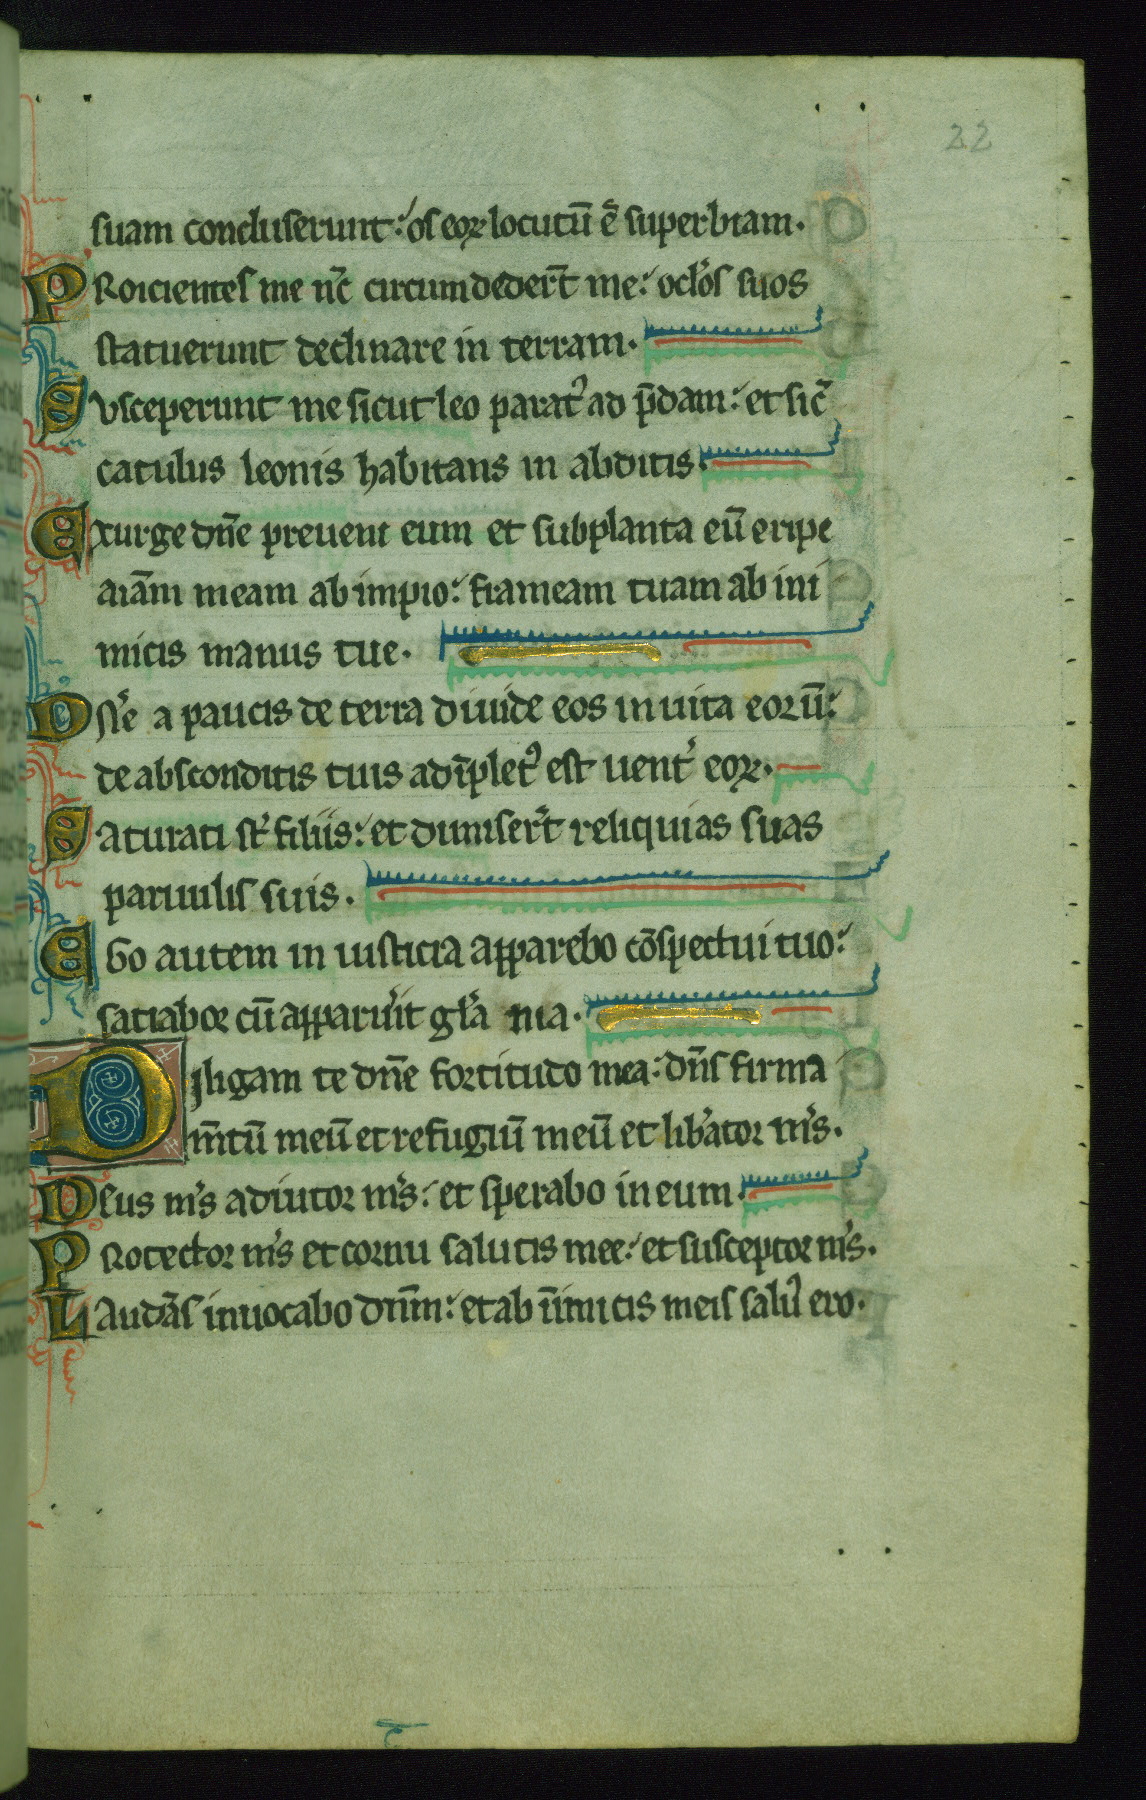 22
suam concluserunt: os eoꝝ locutū ē superbiam.
PRoicientes me nc̄ circumdeder̄t me: oclōs suos
statuerunt declinare in terram.
Susceperunt me sicut leo parat᾽ ad p̄dam: et sic̄
catulus leonis habitans in abditis.
Exurge dn̄e preueni eum et subplanta eū eripe
aīam meam ab impio: frameam tuam ab ini
micis manus tue.
Dn̄e a paucis de terra diuide eos in uita eorū:
de absconditis tuis adīplet᾽ est uent᾽ eoꝝ.
Saturati st̄ filiis: et dimiser̄t reliquias suas
paruulis suis.
EGo autem in iusticia apparebo cōspectui tuo:
satiabor cū apparu᾽it gl̄a tua.
Diligam te dn̄e fortitudo mea: dn̄s firma
m̄tū meū et refugiū meū et lib᾽ator m᾽s.
Deus m᾽s adiutor m᾽s: et sperabo in eum.
PRotector m᾽s et cornu salutis mee: et susceptor m᾽s.
LAudās inuocabo dnm̄: et ab īimicis meis salu᾽ ero.